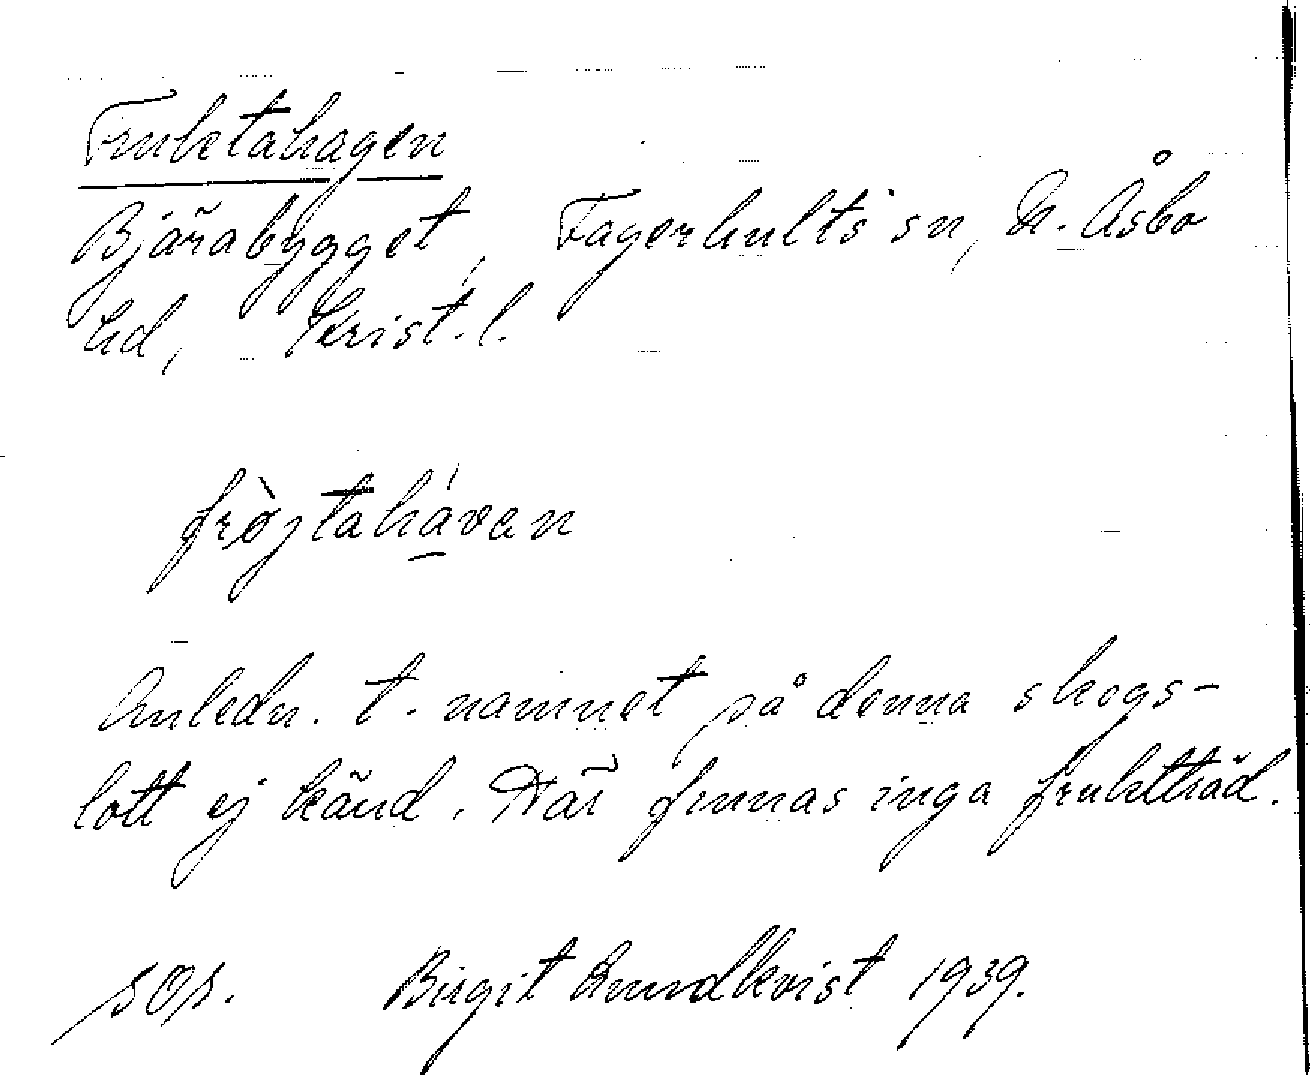 Fruktahagen
Bjärabygget, Fagerhults sn, N. Åsbo
hd, Krist. l.
fròjtahávan
Anledn. t. namnet på denna skogs-
lott ej känd. Här finnas inga fruktträd.
SOS. Birgit Lundkvist 1939.